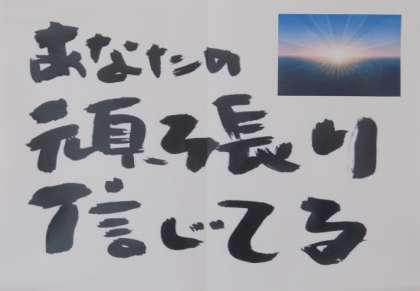 あなたの
頑張り
信じてる